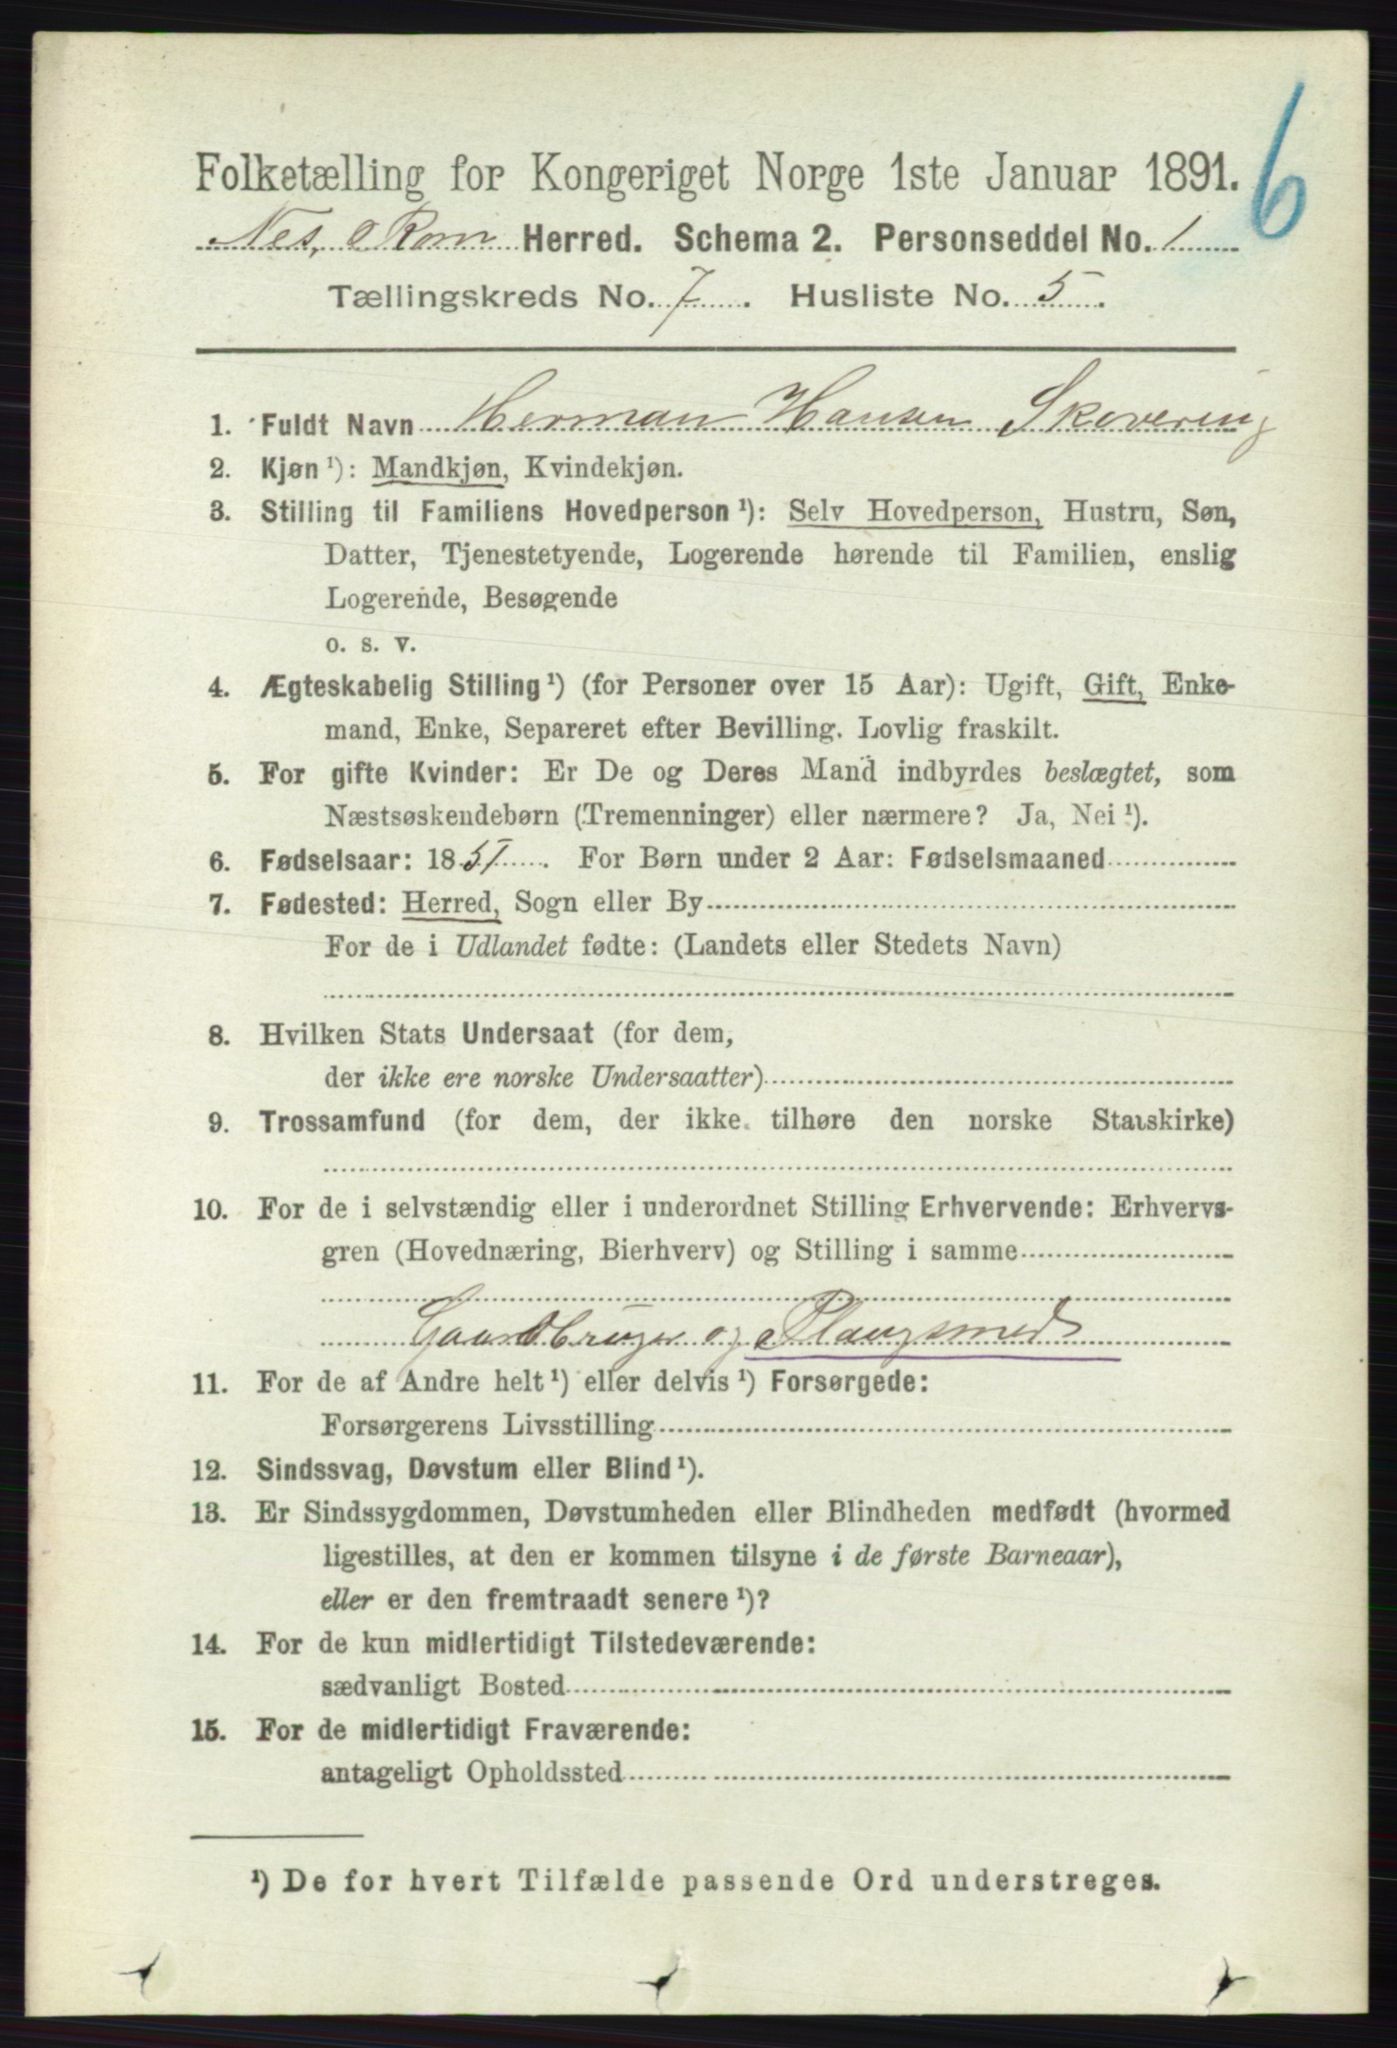 6
Folketælling for Kongeriget Norge 1ste Januar 1891.
Nes, Rom Herred. Schema 2. Personseddel No. 1
Tællingskreds No. 7. Husliste No. 5.
1. Fuldt Navn Herman Hansen Skovering
2. Kjøn ¹): Mandkjøn, Kvindekjøn.
3. Stilling til Familiens Hovedperson ¹): Selv Hovedperson, Hustru, Søn,
Datter, Tjenestetyende, Logerende hørende til Familien, enslig
Logerende, Besøgende
o. s. v.
4. Ægteskabelig Stilling ¹) (for Personer over 15 Aar): Ugift, Gift, Enke-
mand, Enke, Separeret efter Bevilling. Lovlig fraskilt.
5. For gifte Kvinder: Er De og Deres Mand indbyrdes beslægtet, som
Næstsøskendebørn (Tremenninger) eller nærmere? Ja, Nei ¹).
6. Fødselsaar: 1851. For Børn under 2 Aar: Fødselsmaaned
7. Fødested: Herred, Sogn eller By
For de i Udlandet fødte: (Landets eller Stedets Navn)
8. Hvilken Stats Undersaat (for dem,
der ikke ere norske Undersaatter)
9. Trossamfund (for dem, der ikke tilhøre den norske Statskirke)
10. For de i selvstændig eller i underordnet Stilling Erhvervende: Erhvervs-
gren (Hovednæring, Bierhverv) og Stilling i samme
Gaardbruger og Plougsmed
11. For de af Andre helt ¹) eller delvis ¹) Forsørgede:
Forsørgerens Livsstilling
12. Sindssvag, Døvstum eller Blind ¹).
13. Er Sindssygdommen, Døvstumheden eller Blindheden medfødt (hvormed
ligestilles, at den er kommen tilsyne i de første Barneaar),
eller er den fremtraadt senere ¹)?
14. For de kun midlertidigt Tilstedeværende:
sædvanligt Bosted
15. For de midlertidigt Fraværende:
antageligt Opholdssted
¹) De for hvert Tilfælde passende Ord understreges.